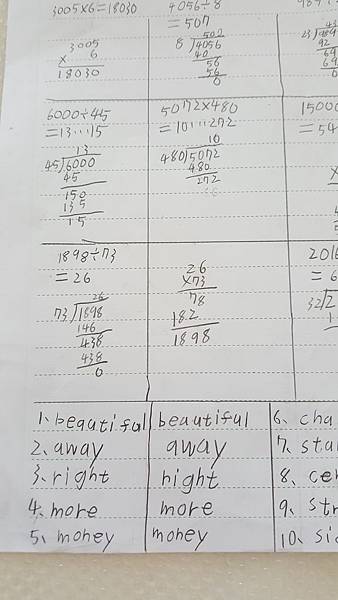 3005×6=18030
3005
× 6
18030
4056÷8
=507
8 4056
40
56
56
0
92
6000÷45
=13…15
13
45 6000
45
150
135
15
5072×480
=10…272
10
480 5072
480
272
15000
=54
1898÷73
=26
26
73 1898
146
438
438
0
26
×73
78
182
1898
2016
=6
32 2
1、beautiful beautiful 6、cha
2、away away 7、sta
3、right right 8、cer
4、more more 9、str
5、money money 10、sic